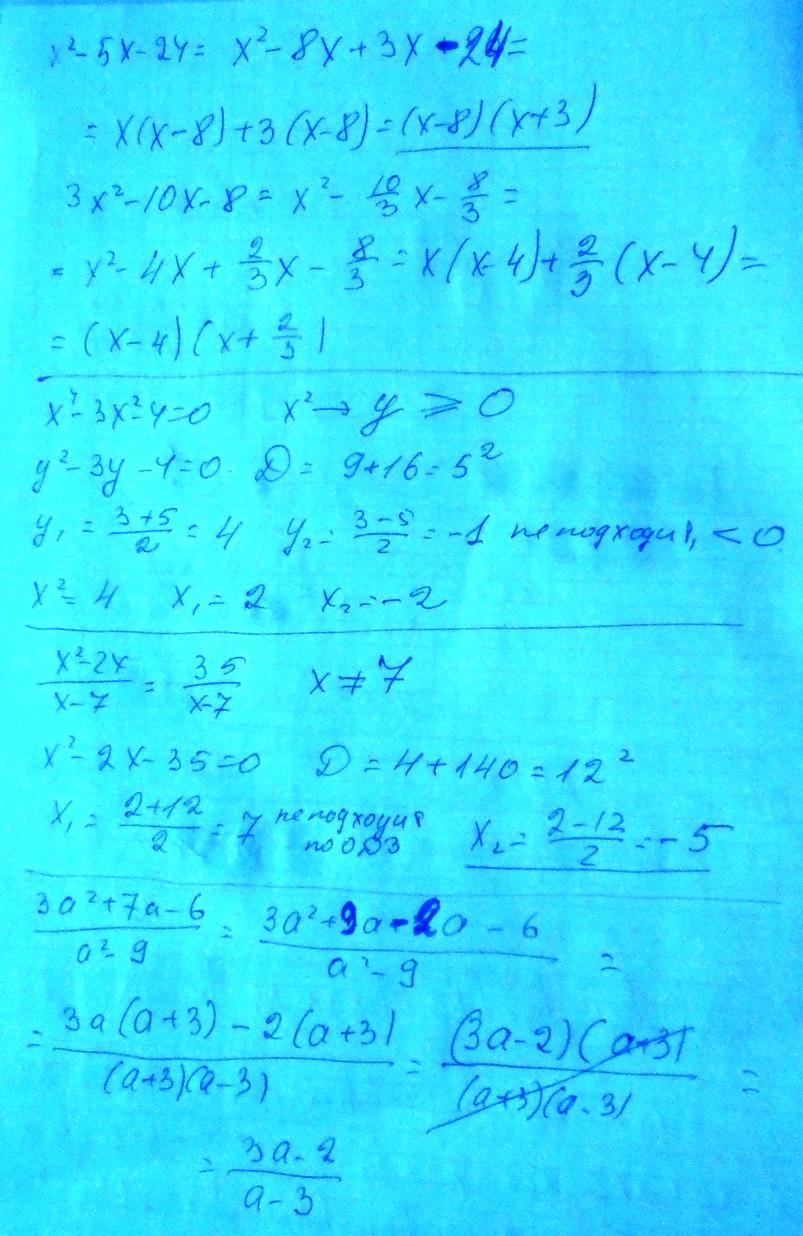 x²-5x-24= x²-8x+3x-24=
= x(x-8)+3(x-8)=(x-8)(x+3)
3x²-10x-8= x²- 10/3 x- 8/3 =
= x²-4x+ 2/3 x - 8/3 = x(x-4)+ 2/3 (x-4)=
= (x-4)(x+ 2/3)
x⁴-3x²-4=0 x²→y ⩾ 0
y²-3y-4=0. D= 9+16=5²
y₁ = (3+5)/2 = 4 y₂= (3-5)/2 = -1 не подходит, <0
x²=4 x₁=2 x₂=-2
(x²-2x)/(x-7) = 35/(x-7) x≠7
x²-2x-35=0 D=4+140=12²
x₁= (2+12)/2 = 7 не подходит по ОДЗ x₂= (2-12)/2 =-5
(3a²+7a-6)/(a²-9) = (3a²+9a-2a-6)/(a²-9) =
= (3a(a+3)-2(a+3))/((a+3)(a-3)) = ((3a-2)(a+3))/((a+3)(a-3)) =
= (3a-2)/(a-3)